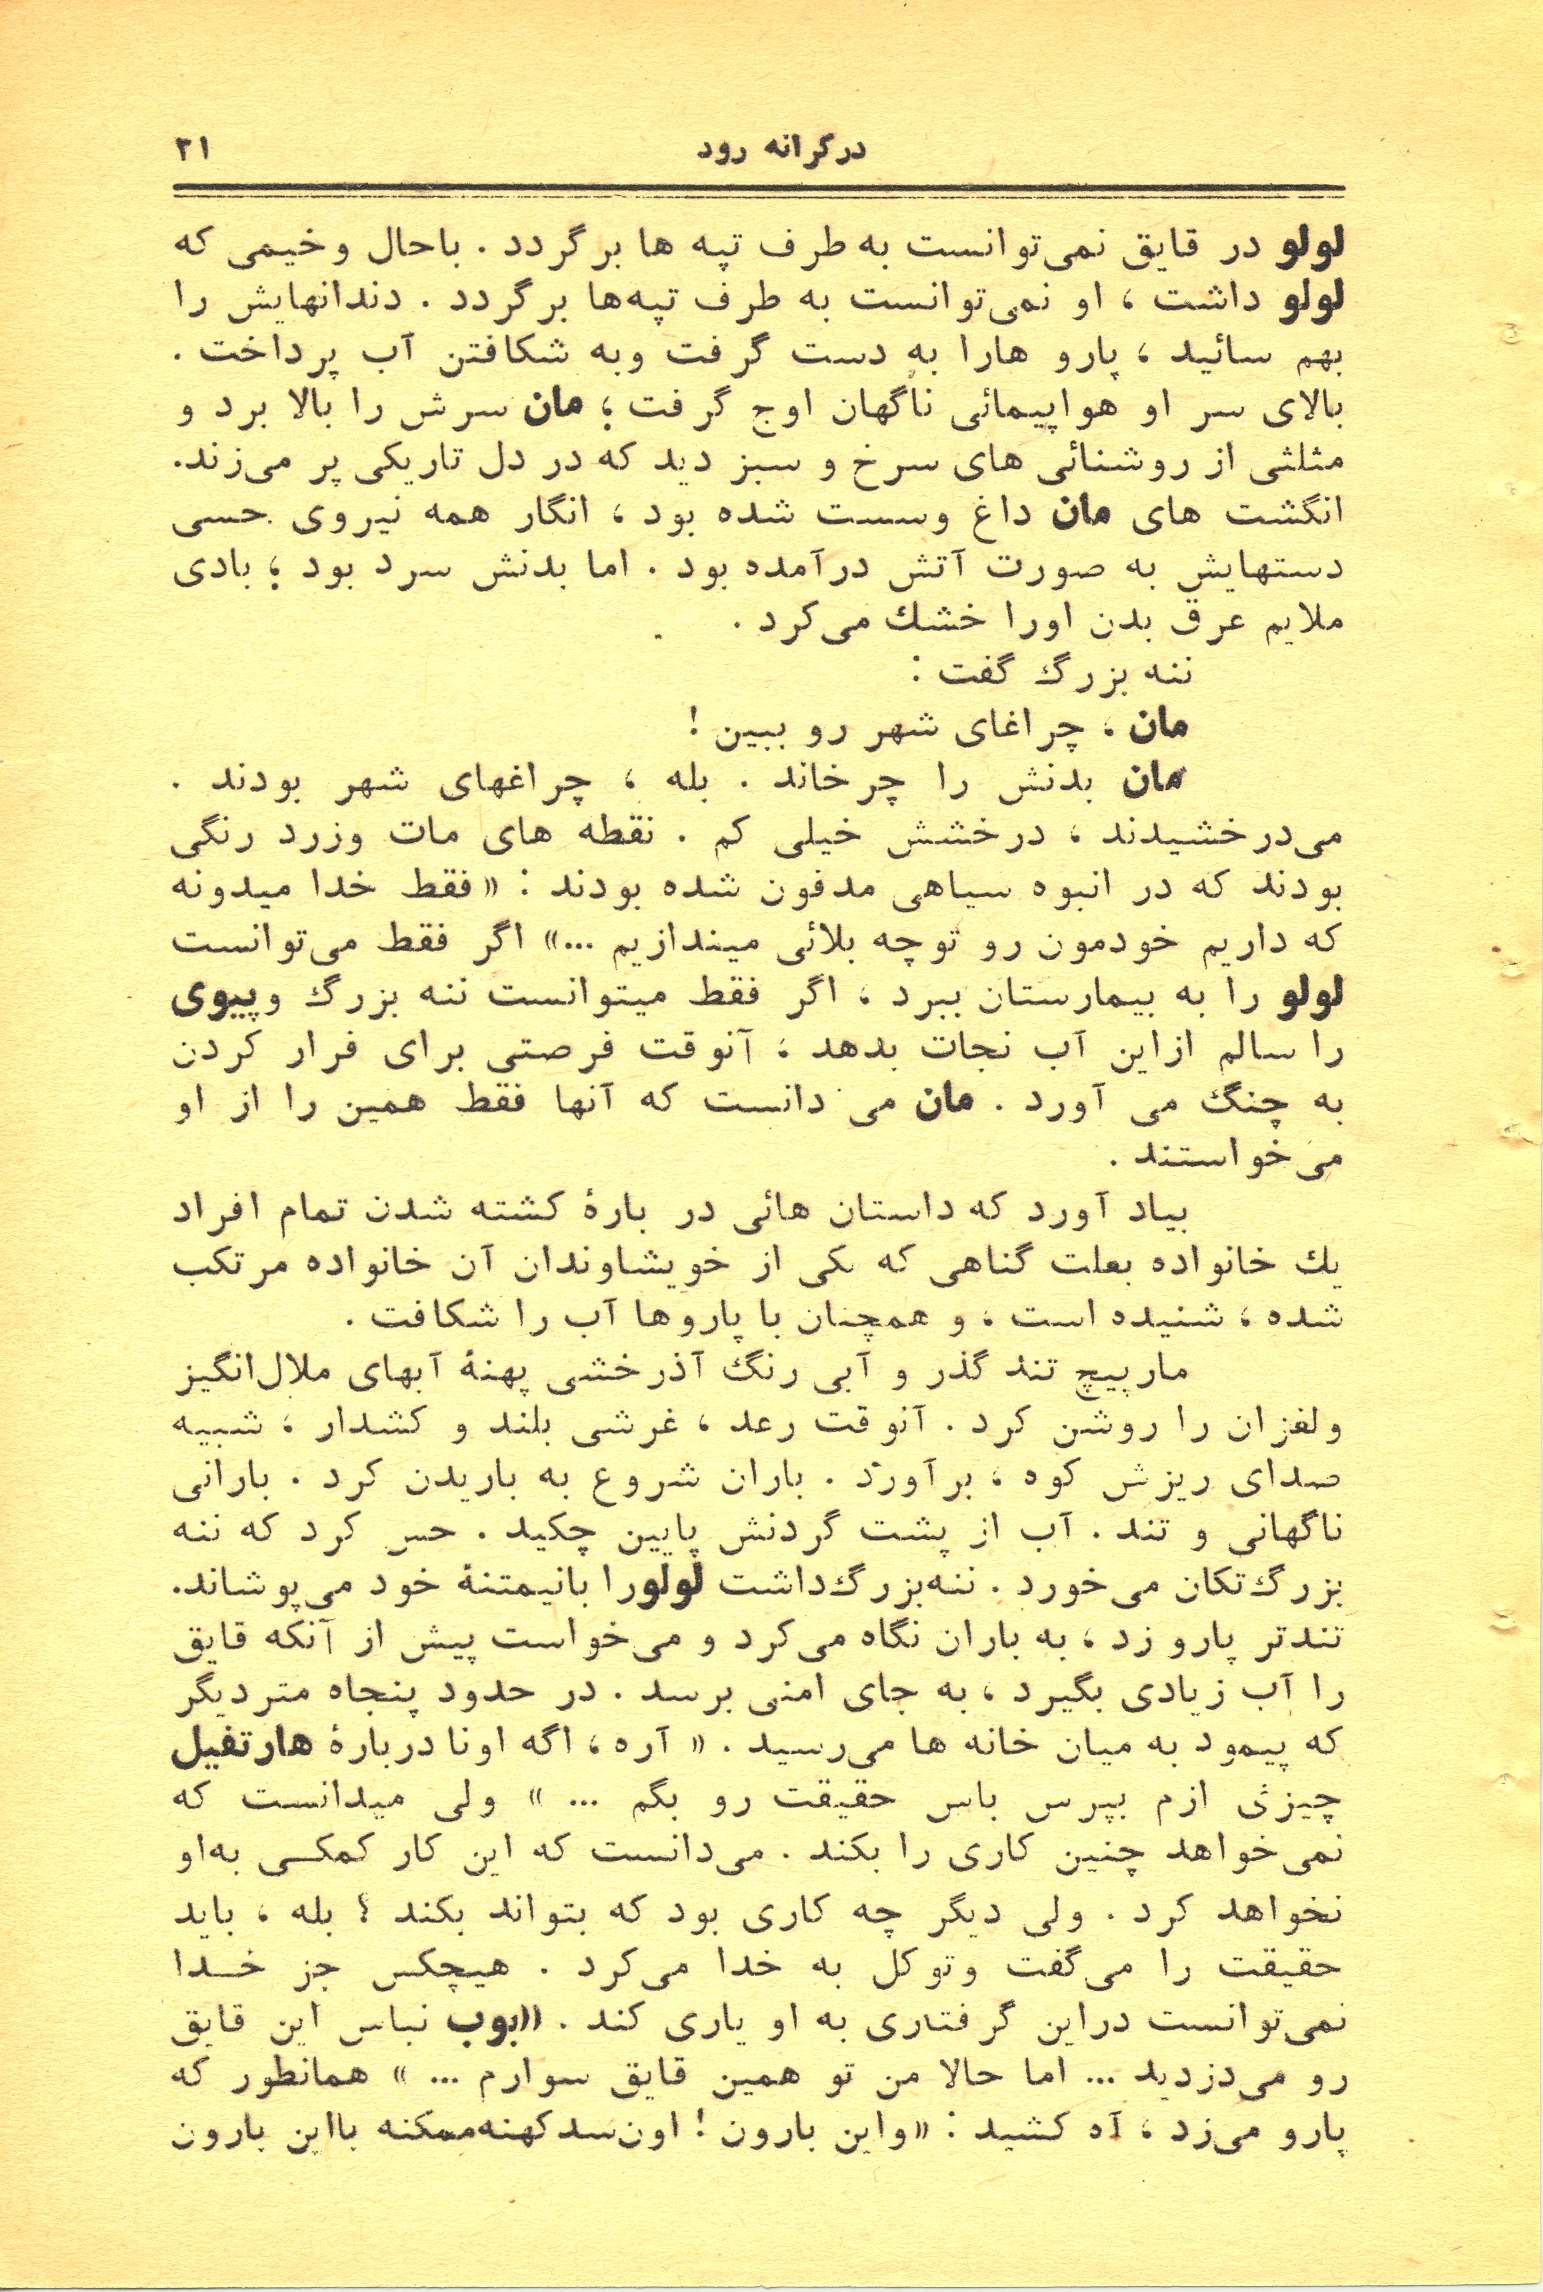 درکرانه رود
۳۱
لولو در قایق نمی‌توانست به طرف تپه ها برگردد . باحال وخیمی که
لولو داشت ، او نمی‌توانست به طرف تپه‌ها برگردد . دندانهایش را
بهم سائید ، پارو هارا به دست گرفت وبه شکافتن آب پرداخت .
بالای سر او هواپیمائی ناگهان اوج گرفت ؛ مان سرش را بالا برد و
مثلثی از روشنائی های سرخ و سبز دید که در دل تاریکی پر می‌زند.
انگشت های مان داغ وسست شده بود ، انگار همه نیروی حسی
دستهایش به صورت آتش درآمده بود . اما بدنش سرد بود ؛ بادی
ملایم عرق بدن اورا خشك می‌کرد .
ننه بزرگ گفت :
مان ، چراغای شهر رو ببین !
مان بدنش را چرخاند . بله ، چراغهای شهر بودند .
می‌درخشیدند ، درخشش خیلی کم . نقطه های مات وزرد رنگی
بودند که در انبوه سیاهی مدفون شده بودند : « فقط خدا میدونه
که داریم خودمون رو توچه بلائی میندازیم ...» اگر فقط می‌توانست
لولو را به بیمارستان ببرد ، اگر فقط میتوانست ننه بزرگ وپیوی
را سالم ازاین آب نجات بدهد ، آنوقت فرصتی برای فرار کردن
به چنگ می آورد . مان می دانست که آنها فقط همین را از او
می‌خواستند .
بیاد آورد که داستان هائی در بارهٔ کشته شدن تمام افراد
یك خانواده بعلت گناهی که یکی از خویشاوندان آن خانواده مرتکب
شده ، شنیده است ، و همچنان با پاروها آب را شکافت .
مارپیچ تند گذر و آبی رنگ آذرخشی پهنهٔ آبهای ملال‌انگیز
ولغزان را روشن کرد . آنوقت رعد ، غرشی بلند و کشدار ، شبیه
صدای ریزش کوه ، برآورد . باران شروع به باریدن کرد . بارانی
ناگهانی و تند . آب از پشت گردنش پایین چکید . حس کرد که ننه
بزرگ‌تکان می‌خورد . ننه‌بزرگ‌داشت لولورا بانیمتنهٔ خود می‌پوشاند.
تندتر پارو زد ، به باران نگاه می‌کرد و می‌خواست پیش از آنکه قایق
را آب زیادی بگیرد ، به جای امنی برسد . در حدود پنجاه متردیگر
که پیمود به میان خانه ها می‌رسید . « آره ، اگه اونا دربارهٔ هارتفیل
چیزی ازم بپرس باس حقیقت رو بگم ... » ولی میدانست که
نمی‌خواهد چنین کاری را بکند . می‌دانست که این کار کمکی به‌او
نخواهد کرد . ولی دیگر چه کاری بود که بتواند بکند ؟ بله ، باید
حقیقت را می‌گفت وتوکل به خدا می‌کرد . هیچکس جز خدا
نمی‌توانست دراین گرفتاری به او یاری کند . «بوب نباس این قایق
رو می‌دزدید ... اما حالا من تو همین قایق سوارم ... » همانطور که
پارو می‌زد ، آه کشید : «واین بارون ! اون‌سدکهنه‌ممکنه بااین بارون